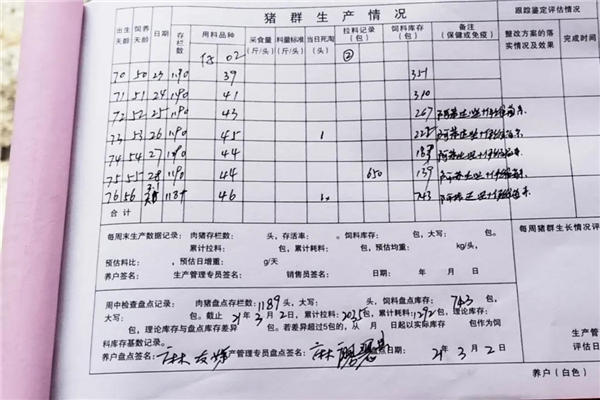 猪 群 生 产 情 况
跟踪鉴定评估情况
出生天龄 饲养天龄 日期 存栏数 用料品种 采食量(斤/头) 料量标准(斤/头) 当日死淘(头) 拉料记录(包) 饲料库存(包) 备注(保健或免疫) 整改方案的落实情况及效果 完成时间
02 ②
70 50 23 1190 39 351
71 51 24 1190 41 310
72 52 25 1190 43 267
73 53 26 1190 45 1
74 54 27 1190 44 183
75 55 28 1190 44 650 139
76 56 46 743
合 计
每周末生产数据记录: 肉猪存栏数: 头, 存活率: 。饲料库存: 包, 大写: 包。
累计拉料: 包, 累计耗料: 包, 预估均重: kg/头,
预估料比: , 预估日增重: g/天
养户签名: 生产管理专员签名: 销售员签名: 日期: 年 月 日
每周猪群生长情况评
周中检查盘点记录: 肉猪盘点存栏数: 1189 头, 大写: 头, 饲料盘点库存: 743 包,
大写: 包。截止 21 年 3 月 2 日, 累计拉料: 2035 包, 累计耗料: 1292 包, 理论库存:
包, 理论库存与盘点库存差异 包。若差异超过5包的, 从 月 日起以实际库存 包作为饲
料库存基数记录。
养户盘点签名: 生产管理专员盘点签名: 盘点日期: 21 年 3 月 2 日
生产管
评估日
养户(白色)